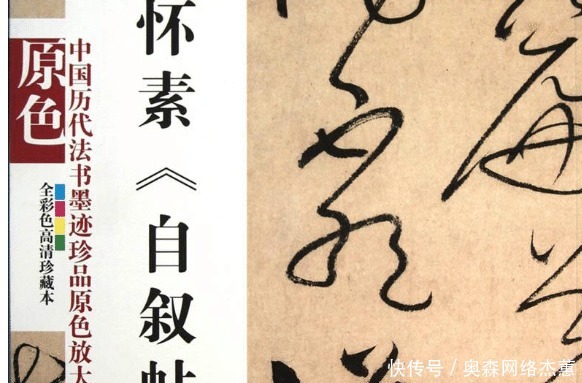 原色
中国历代法书墨迹珍品原色放大
全彩色高清珍藏本
怀素《自叙帖
快传号／奥森网络杰蕉